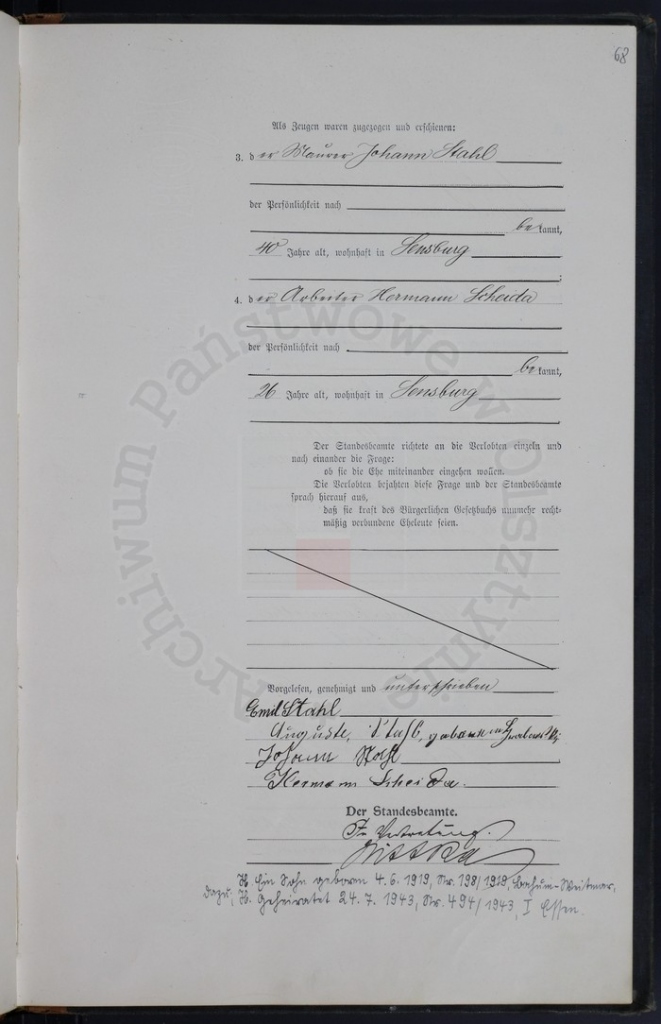 68
Als Zeugen waren zugezogen und erschienen:
3. der Maurer Johann Stahl
der Persönlichkeit nach
bekannt,
40 Jahre alt, wohnhaft in Sensburg
;
4. der Arbeiter Hermann Scheida
der Persönlichkeit nach
bekannt,
26 Jahre alt, wohnhaft in Sensburg
.
Der Standesbeamte richtete an die Verlobten einzeln und
nach einander die Frage:
ob sie die Ehe miteinander eingehen wollen.
Die Verlobten bejahten diese Frage und der Standesbeamte
sprach hierauf aus,
daß sie kraft des Bürgerlichen Gesetzbuchs nunmehr recht-
mäßig verbundene Eheleute seien.
Vorgelesen, genehmigt und unterschrieben
Emil Stahl
Auguste Stahl, geborene
Johann Stahl
Hermann Scheida.
Der Standesbeamte.
In Vertretung.
H. Ein Sohn geboren 4.6.1919, Nr. 198/1919, Bochum-Weitmar.
dazu, H. Geheiratet 24.7.1943, Nr. 494/1943, I Essen.
Archiwum Państwowe w Olsztynie